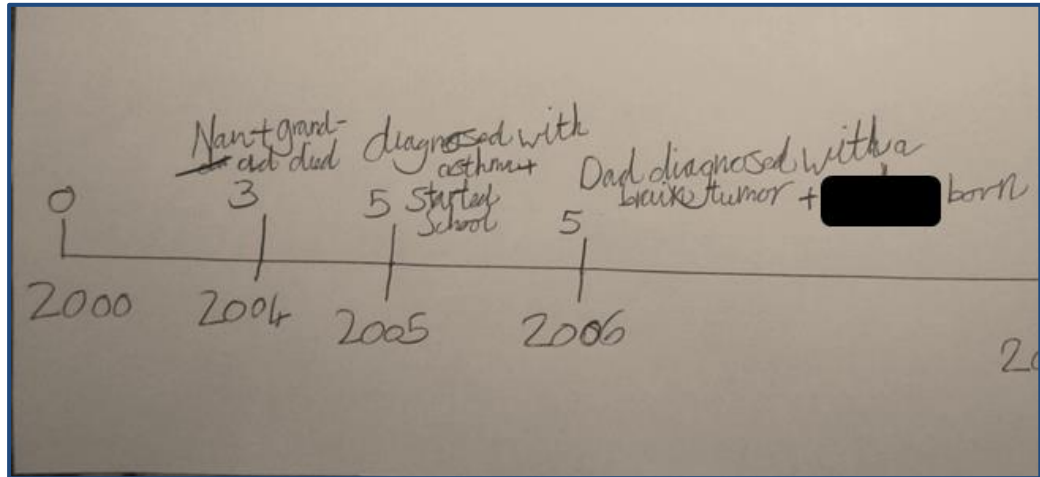 Nan + grand-
ad died
3
diagnosed with
asthma +
Started
School
5
Dad diagnosed with a
brain tumor + born
5
0
2000
2004
2005
2006
20